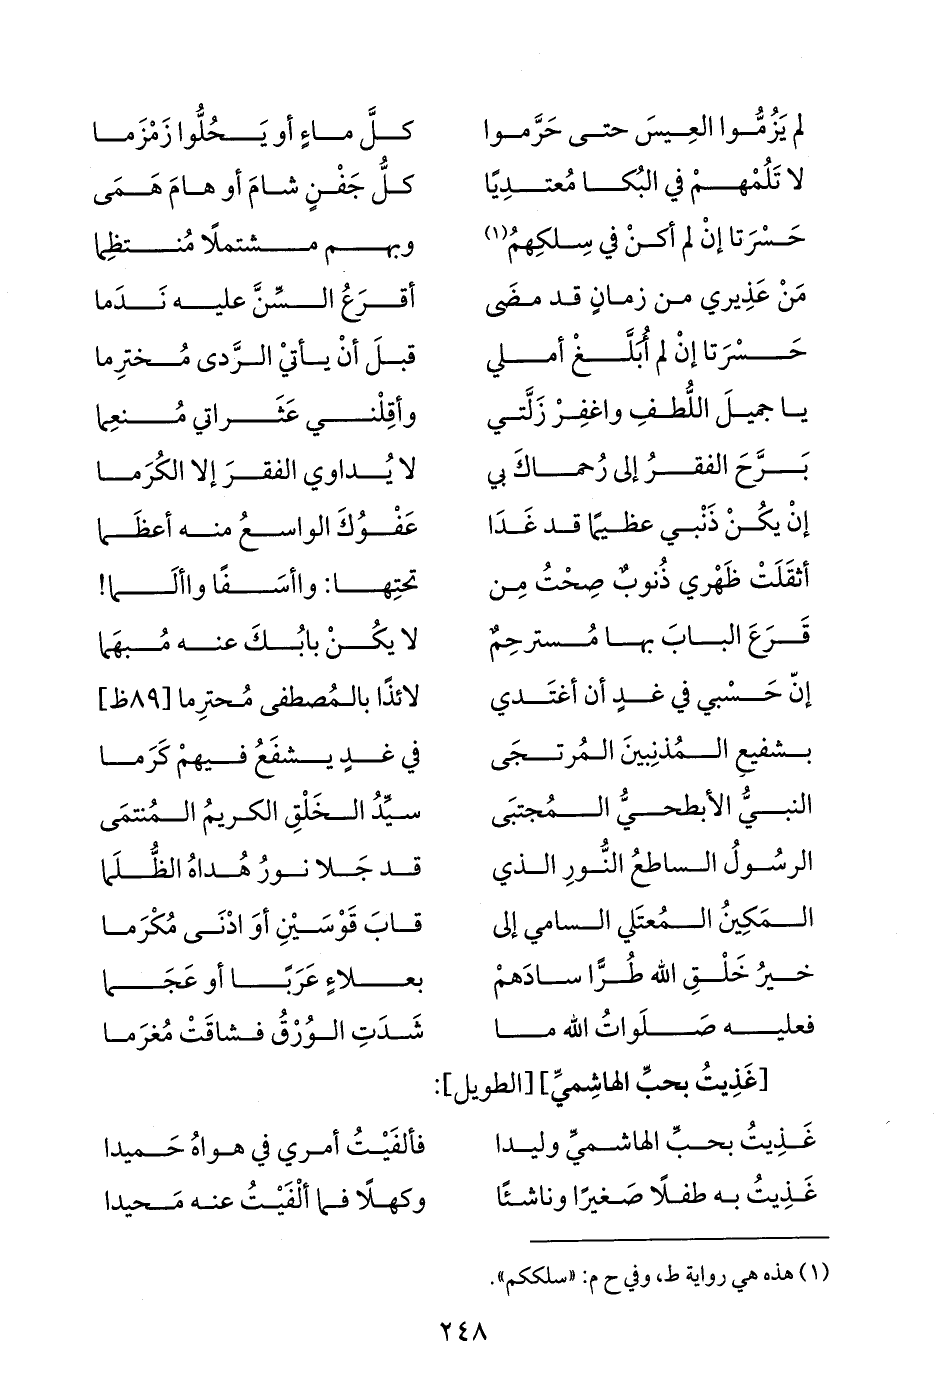 لم يَزُمُّوا العِيسَ حتى حَرَّموا كلَّ ماءٍ أو يَحُلُّوا زَمْزَما
لا تَلُمْهمْ في البُكا مُعتديًا كلُّ جَفْنٍ شامَ أو هامَ هَمَى
حَسْرَتا إنْ لم أكنْ في سِلكِهمُ(١) وبهم مشتملًا مُنتظِما
مَنْ عَذِيري من زمانٍ قد مضَى أقرَعُ السِّنَّ عليه نَدَما
حَسْرَتا إنْ لم أُبَلَّغْ أملي قبلَ أنْ يأتيْ الرَّدى مُخترِما
يا جميلَ اللُّطفِ واغفِرْ زَلَّتي وأقِلْني عَثَراتي مُنعِما
بَرَّحَ الفقرُ إلى رُحماكَ بي لا يُداوي الفقرَ إلا الكُرَما
إنْ يكُنْ ذَنْبي عظيمًا قد غَدَا عَفْوُكَ الواسعُ منه أعظَما
أثقَلَتْ ظَهْري ذُنوبٌ صِحْتُ مِن تحتِها: واأسَفًا واألَما!
قَرَعَ البابَ بها مُسترحِمٌ لا يكُنْ بابُكَ عنه مُبهَما
إنّ حَسْبي في غدٍ أن أغتَدي لائذًا بالمُصطفى مُحترِما [٨٩ظ]
بشفيعِ المُذنِبينَ المُرتجَى في غدٍ يشفَعُ فيهمْ كَرَما
النبيُّ الأبطحيُّ المُجتبَى سيِّدُ الخَلْقِ الكريمُ المُنتمَى
الرسُولُ الساطعُ النُّورِ الذي قد جَلا نورُ هُداهُ الظُّلَما
المَكِينُ المُعتلي السامي إلى قابَ قَوْسَيْنِ أوَ ادْنَى مُكْرَما
خيرُ خَلْقِ الله طُرًّا سادَهمْ بعلاءٍ عَرَبًا أو عَجَما
فعليه صَلَواتُ الله ما شَدَتِ الوُرْقُ فشاقَتْ مُغرَما
[غَذِيتُ بحبِّ الهاشِميِّ] [الطويل]:
غَذِيتُ بحبِّ الهاشميِّ وليدا فألفَيْتُ أمري في هواهُ حَميدا
غَذِيتُ به طفلًا صَغيرًا وناشئًا وكهلًا فما ألْفَيْتُ عنه مَحيدا
(١) هذه هي رواية ط، وفي ح م: «سلككم».
٢٤٨